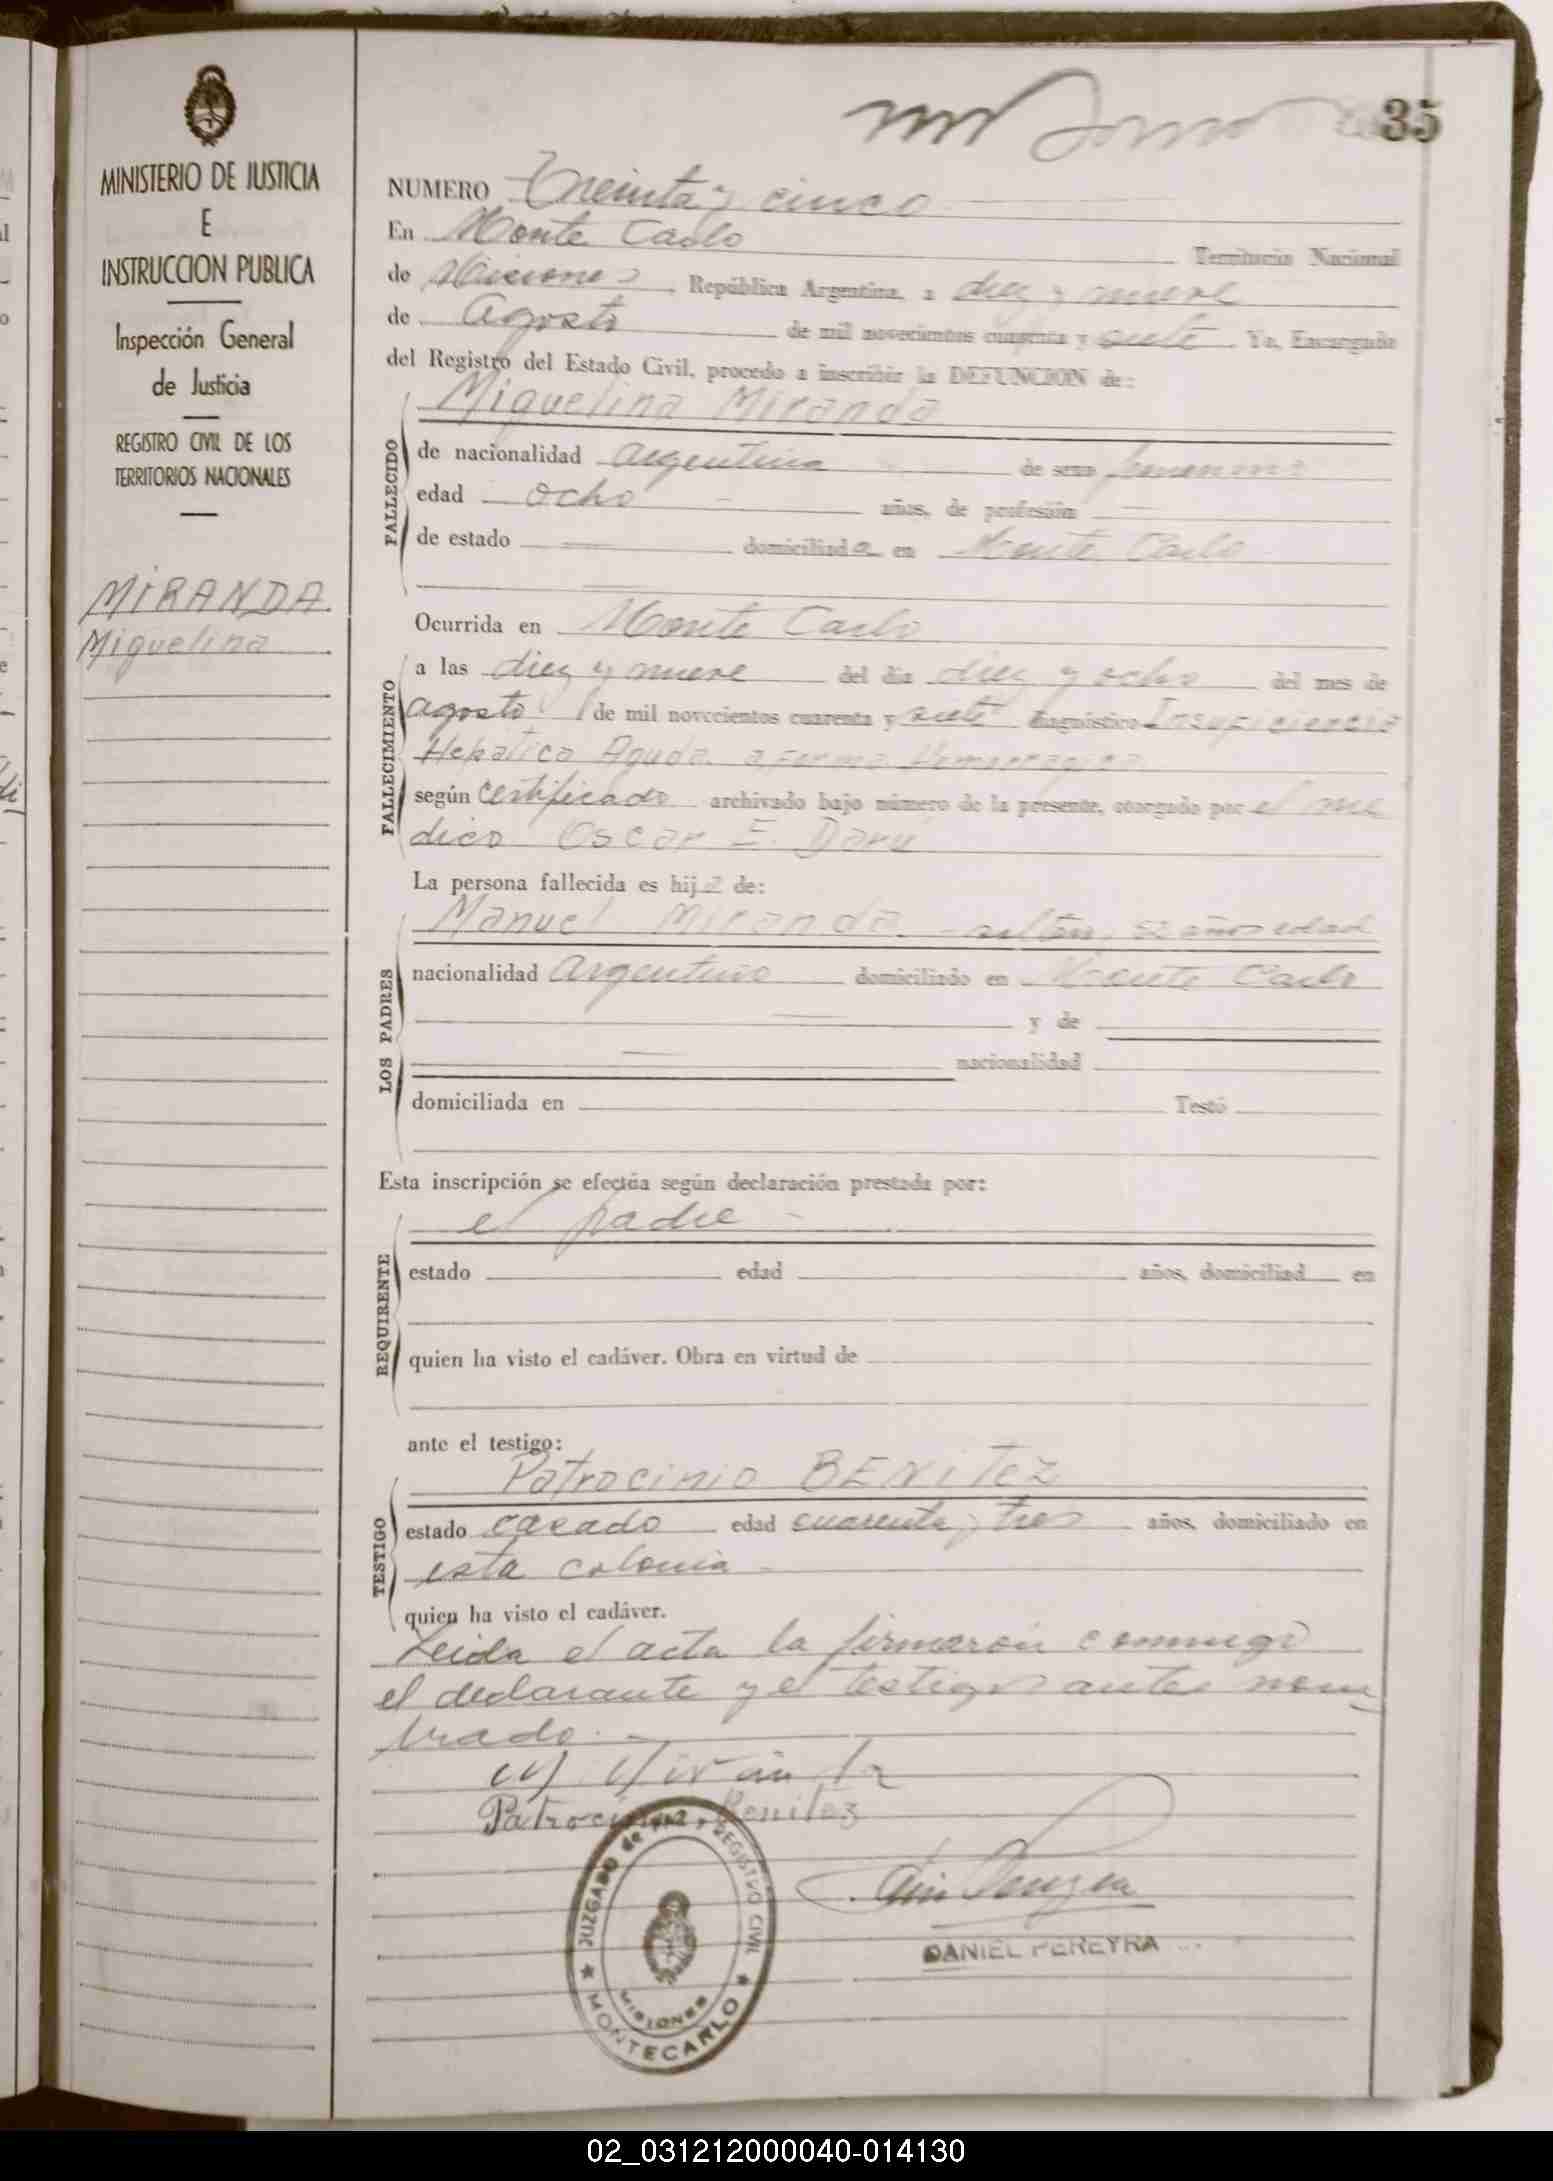 35
MINISTERIO DE JUSTICIA
E
INSTRUCCION PUBLICA
Inspección General
de Justicia
REGISTRO CIVIL DE LOS
TERRITORIOS NACIONALES
MIRANDA
Miguelina
NUMERO Treinta y cinco
En Monte Carlo Territorio Nacional
de Misiones, República Argentina, a diez y nueve
de Agosto de mil novecientos cuarenta y siete. Yo, Encargado
del Registro del Estado Civil, procedo a inscribir la DEFUNCION de:
Miguelina Miranda
FALLECIDO
de nacionalidad argentina de sexo femenino
edad ocho años, de profesión
de estado domiciliada en Monte Carlo
Ocurrida en Monte Carlo
FALLECIMIENTO
a las diez y nueve del día diez y ocho del mes de
agosto de mil novecientos cuarenta y siete diagnóstico Insuficiencia
Hepatica Aguda, a forma Hemorragica
según certificado archivado bajo número de la presente, otorgado por el mé
dico Oscar E. Daru
La persona fallecida es hija de:
LOS PADRES
Manuel Miranda - 52 años edad
nacionalidad Argentino domiciliado en Monte Carlo
y de
nacionalidad
domiciliada en Testó
Esta inscripción se efectúa según declaración prestada por:
REQUIRENTE
el padre -
estado edad años, domiciliad en
quien ha visto el cadáver. Obra en virtud de
ante el testigo:
TESTIGO
Patrocinio BENITEZ
estado casado edad cuarenta y tres años, domiciliado en
esta colonia -
quien ha visto el cadáver.
Leida el acta la firmaron conmigo
el declarante y el testigo antes nom
brado. -
M Miranda
Patrocinio Benitez
JUZGADO de PAZ y REGISTRO CIVIL
MISIONES
MONTECARLO
DANIEL PEREYRA
02_031212000040-014130